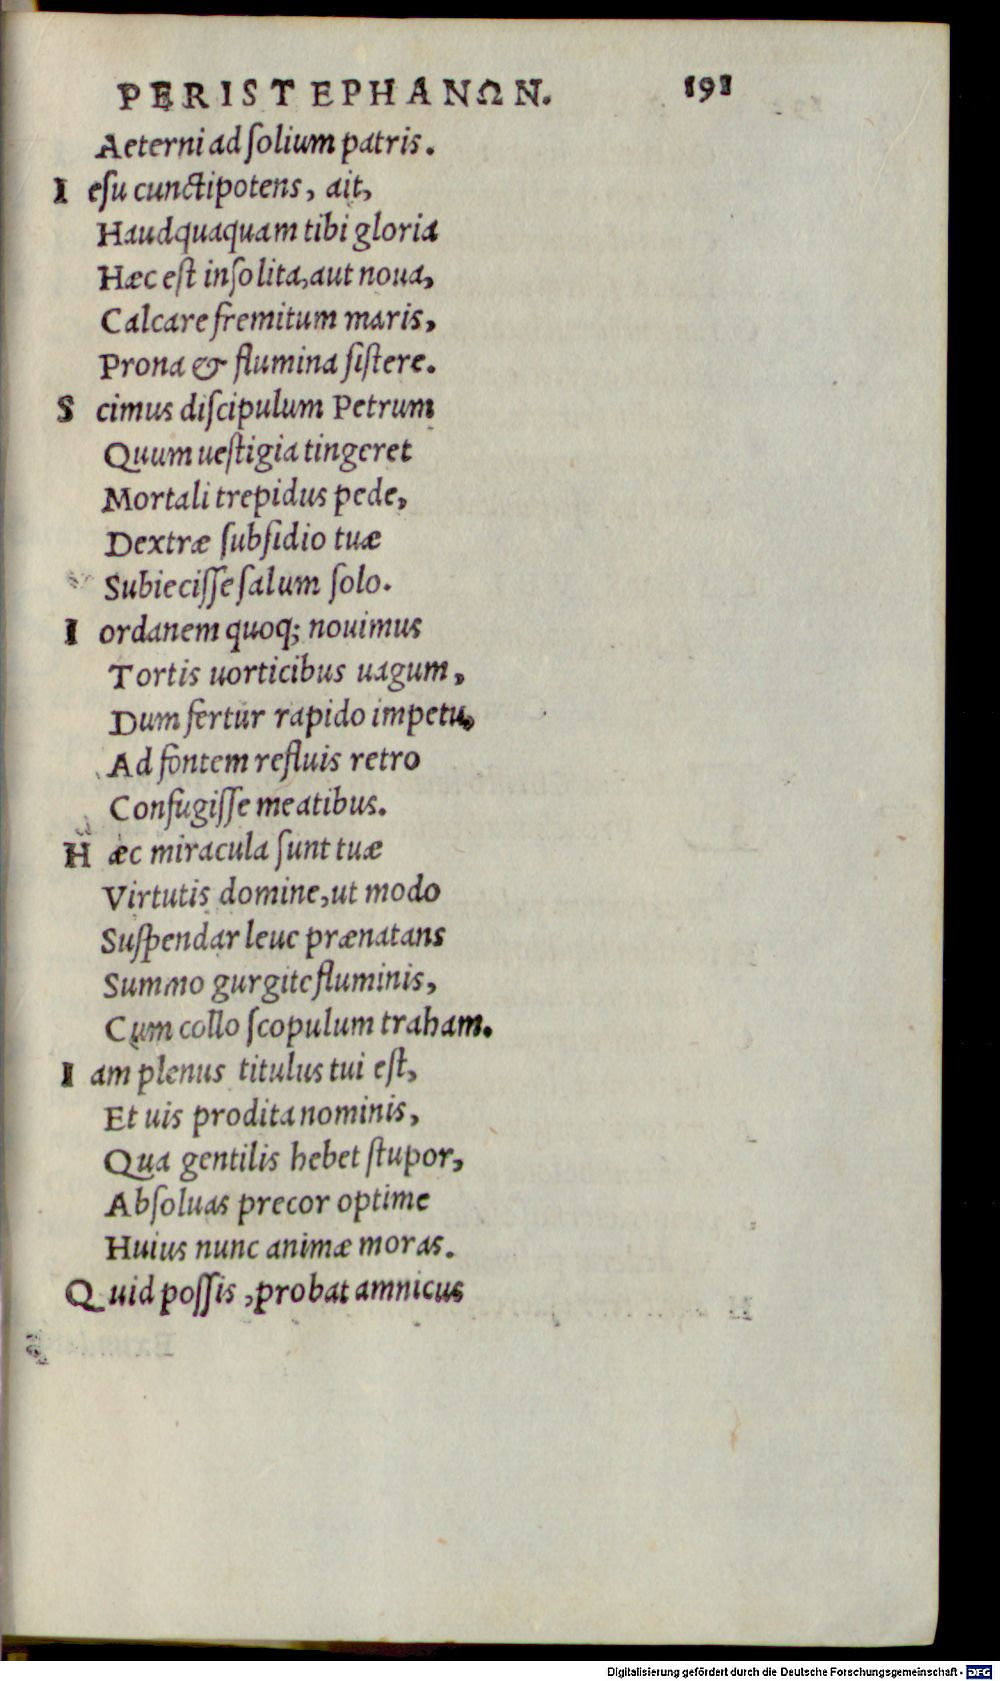 PERISTEPHANΩN. 191
Aeterni ad ſolium patris.
I eſu cunctipotens, ait,
Haudquaquam tibi gloria
Hæc eſt inſolita, aut noua,
Calcare fremitum maris,
Prona & flumina ſiſtere.
S cimus diſcipulum Petrum
Quum ueſtigia tingeret
Mortali trepidus pede,
Dextræ ſubſidio tuæ
Subieciſſe ſalum ſolo.
I ordanem quoq; nouimus
Tortis uorticibus uagum,
Dum fertur rapido impetu,
Ad fontem refluis retro
Confugiſſe meatibus.
H æc miracula ſunt tuæ
Virtutis domine, ut modo
Suſpendar leue prænatans
Summo gurgite fluminis,
Cum collo ſcopulum traham.
I am plenus titulus tui eſt,
Et uis prodita nominis,
Qua gentilis hebet ſtupor,
Abſoluas precor optime
Huius nunc animæ moras.
Q uid poſſis, probat amnicus
Digitalisierung gefördert durch die Deutsche Forschungsgemeinschaft - DFG